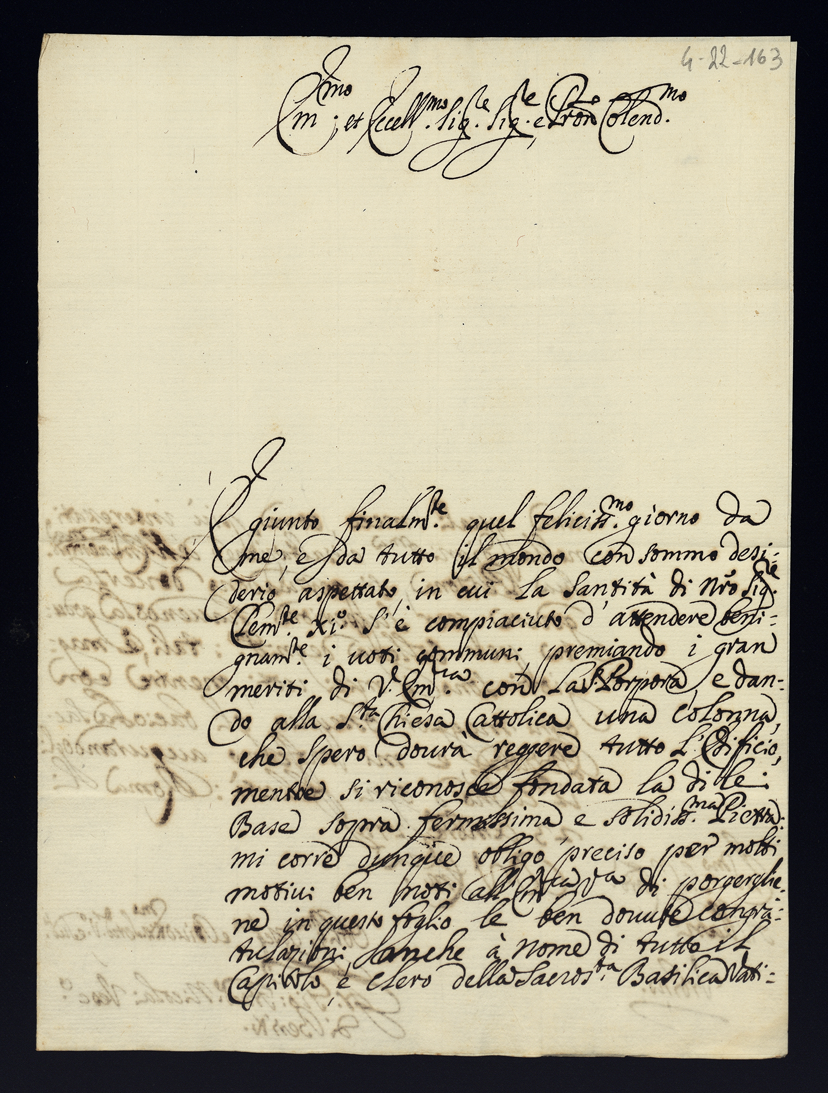 4-22-163
Em.mo et Eccell.mo Sig.re Sig.re, e Pron Colend.mo
È giunto finalm.te quel feliciss.mo giorno da
me, e da tutto il mondo con sommo desi:
derio aspettato, in cui la Santità di Nro Sig.re
Clem.te XI.o s'è compiaciuto d'attendere beni:
gnam.te i voti communi premiando i gran
meriti di V. Em.za con la Porpora, e dan:
do alla S.ta Chiesa Cattolica una colonna,
che spero dovrà reggere tutto l'Edificio,
mentre si riconosce fondata la di lei
Base sopra fermissima e solidiss.ma Pietra:
mi corre dunque obligo preciso per molti
motivi ben noti all'Em.za V.ra di porgerglie:
ne in questo foglio le ben dovute congra:
tulazioni, anche à nome di tutto il
Capitolo, e Clero della Sacros.ta Basilica Vati: